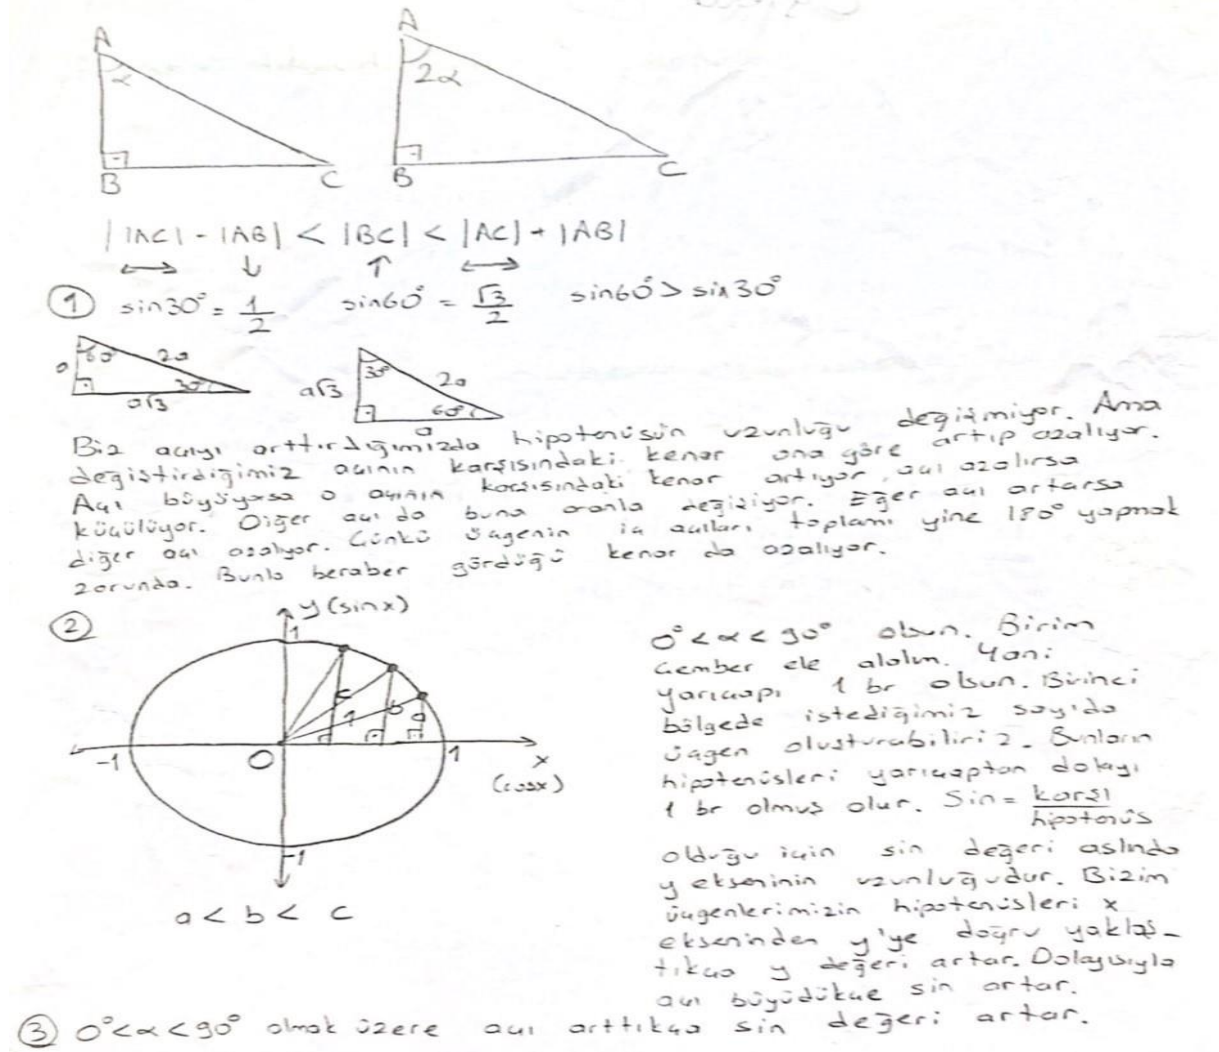 A A
α 2α
B C B C
||AC| - |AB| < |BC| < |AC| + |AB|
↔ ↓ ↑ ↔
① sin30° = 1/2 sin60° = √3/2 sin60° > sin30°
60° 2a 30° 2a
a 30° a√3 60°
a√3 a
Biz açıyı arttırdığımızda hipotenüsün uzunluğu değişmiyor. Ama
değiştirdiğimiz açının karşısındaki kenar ona göre artıp azalıyor.
Açı büyüyorsa o açının karşısındaki kenar artıyor, açı azalırsa
küçülüyor. Diğer açı da buna oranla değişiyor. Eğer açı artarsa
diğer açı azalıyor. Çünkü üçgenin iç açıları toplamı yine 180° yapmak
zorunda. Bunla beraber gördüğü kenar da azalıyor.
②
y (sinx)
1
c b a
1
-1 O 1 x
(cosx)
-1
a < b < c
0° < α < 90° olsun. Birim
çember ele alalım. Yani
yarıçapı 1 br olsun. Birinci
bölgede istediğimiz sayıda
üçgen oluşturabiliriz. Bunların
hipotenüsleri yarıçaptan dolayı
1 br olmuş olur. Sin = karşı/hipotenüs
olduğu için sin değeri aslında
y ekseninin uzunluğudur. Bizim
üçgenlerimizin hipotenüsleri x
ekseninden y'ye doğru yaklaş-
tıkça y değeri artar. Dolayısıyla
açı büyüdükçe sin artar.
③ 0° < α < 90° olmak üzere açı arttıkça sin değeri artar.